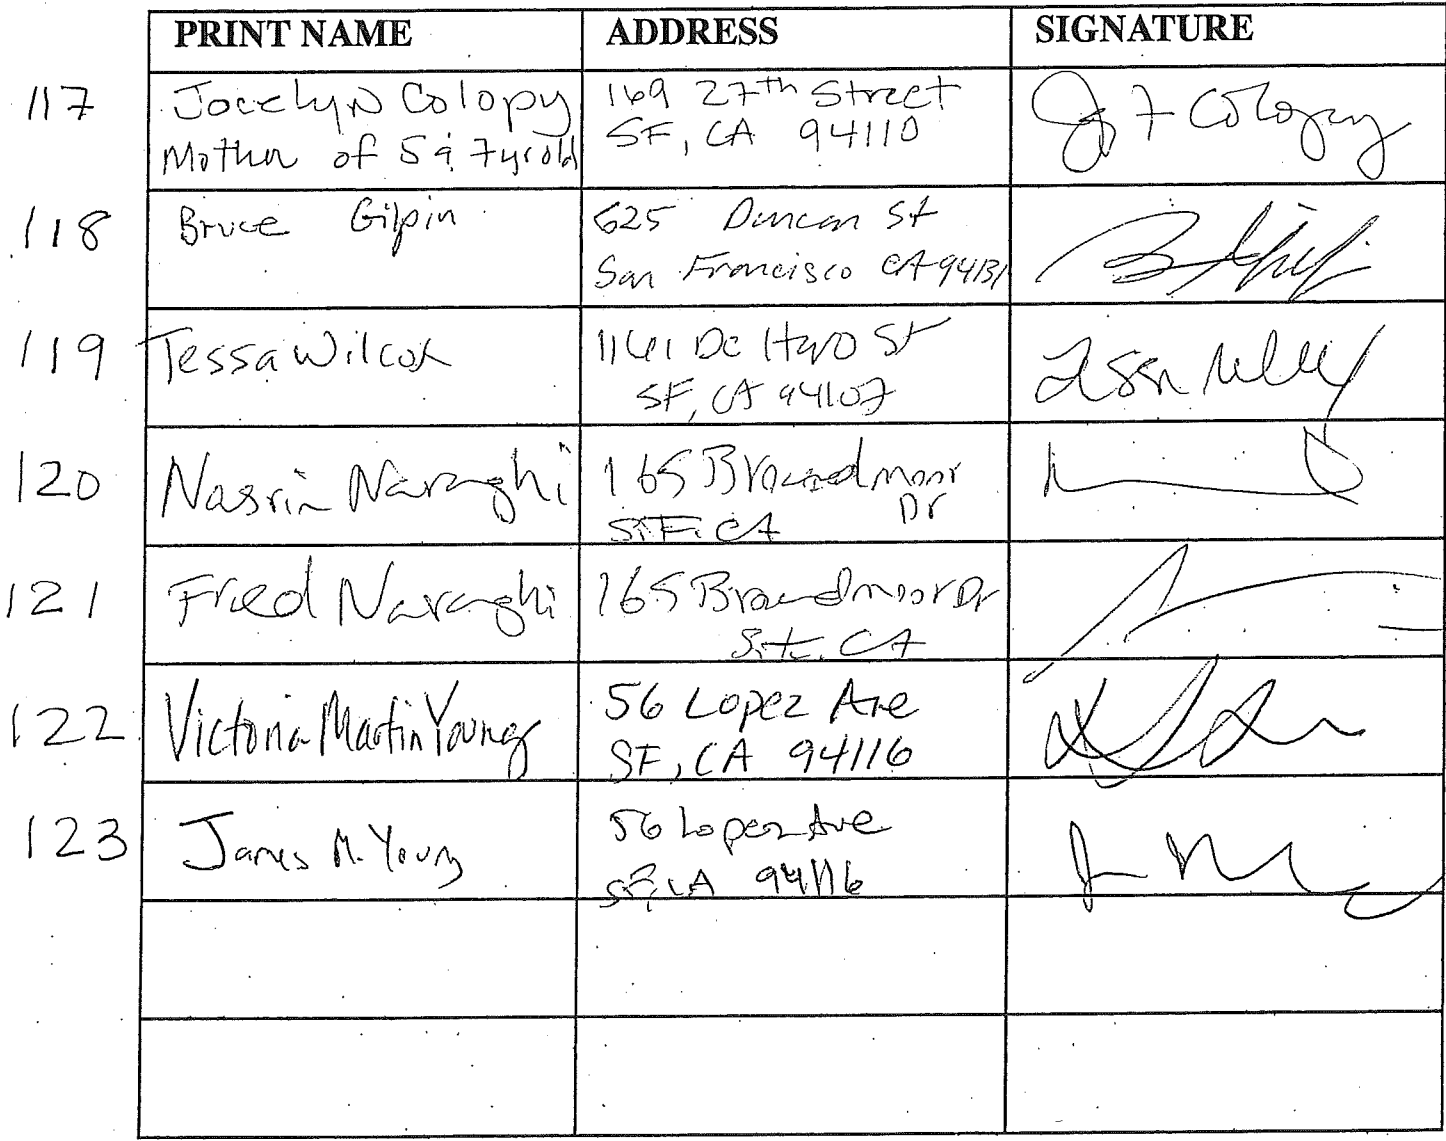 PRINT NAME ADDRESS SIGNATURE
117 Jocelyn Colopy 169 27th Street J F Colopy
Mother of 5 & 7 yr old SF, CA 94110
118 Bruce Gilpin 625 Duncan St
San Francisco CA 94131
119 Tessa Wilcox De Haro St
SF, CA 94107
120 Nasrin Naraghi 165 Broadmoor
Dr
S.F. CA
121 Fred Naraghi 165 Broadmoor Dr
S.F. CA
122 Victoria Martin Young 56 Lopez Ave
SF, CA 94116
123 James M. Young 56 Lopez Ave
SF, CA 94116